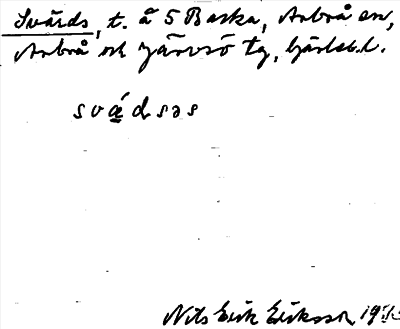 Svärds, t. å 5 Backa, Arbrå sn,
Arbrå och Järvsö tg, Gävleb.l.
svä́dsəs
Nils Erik Eriksson, 19